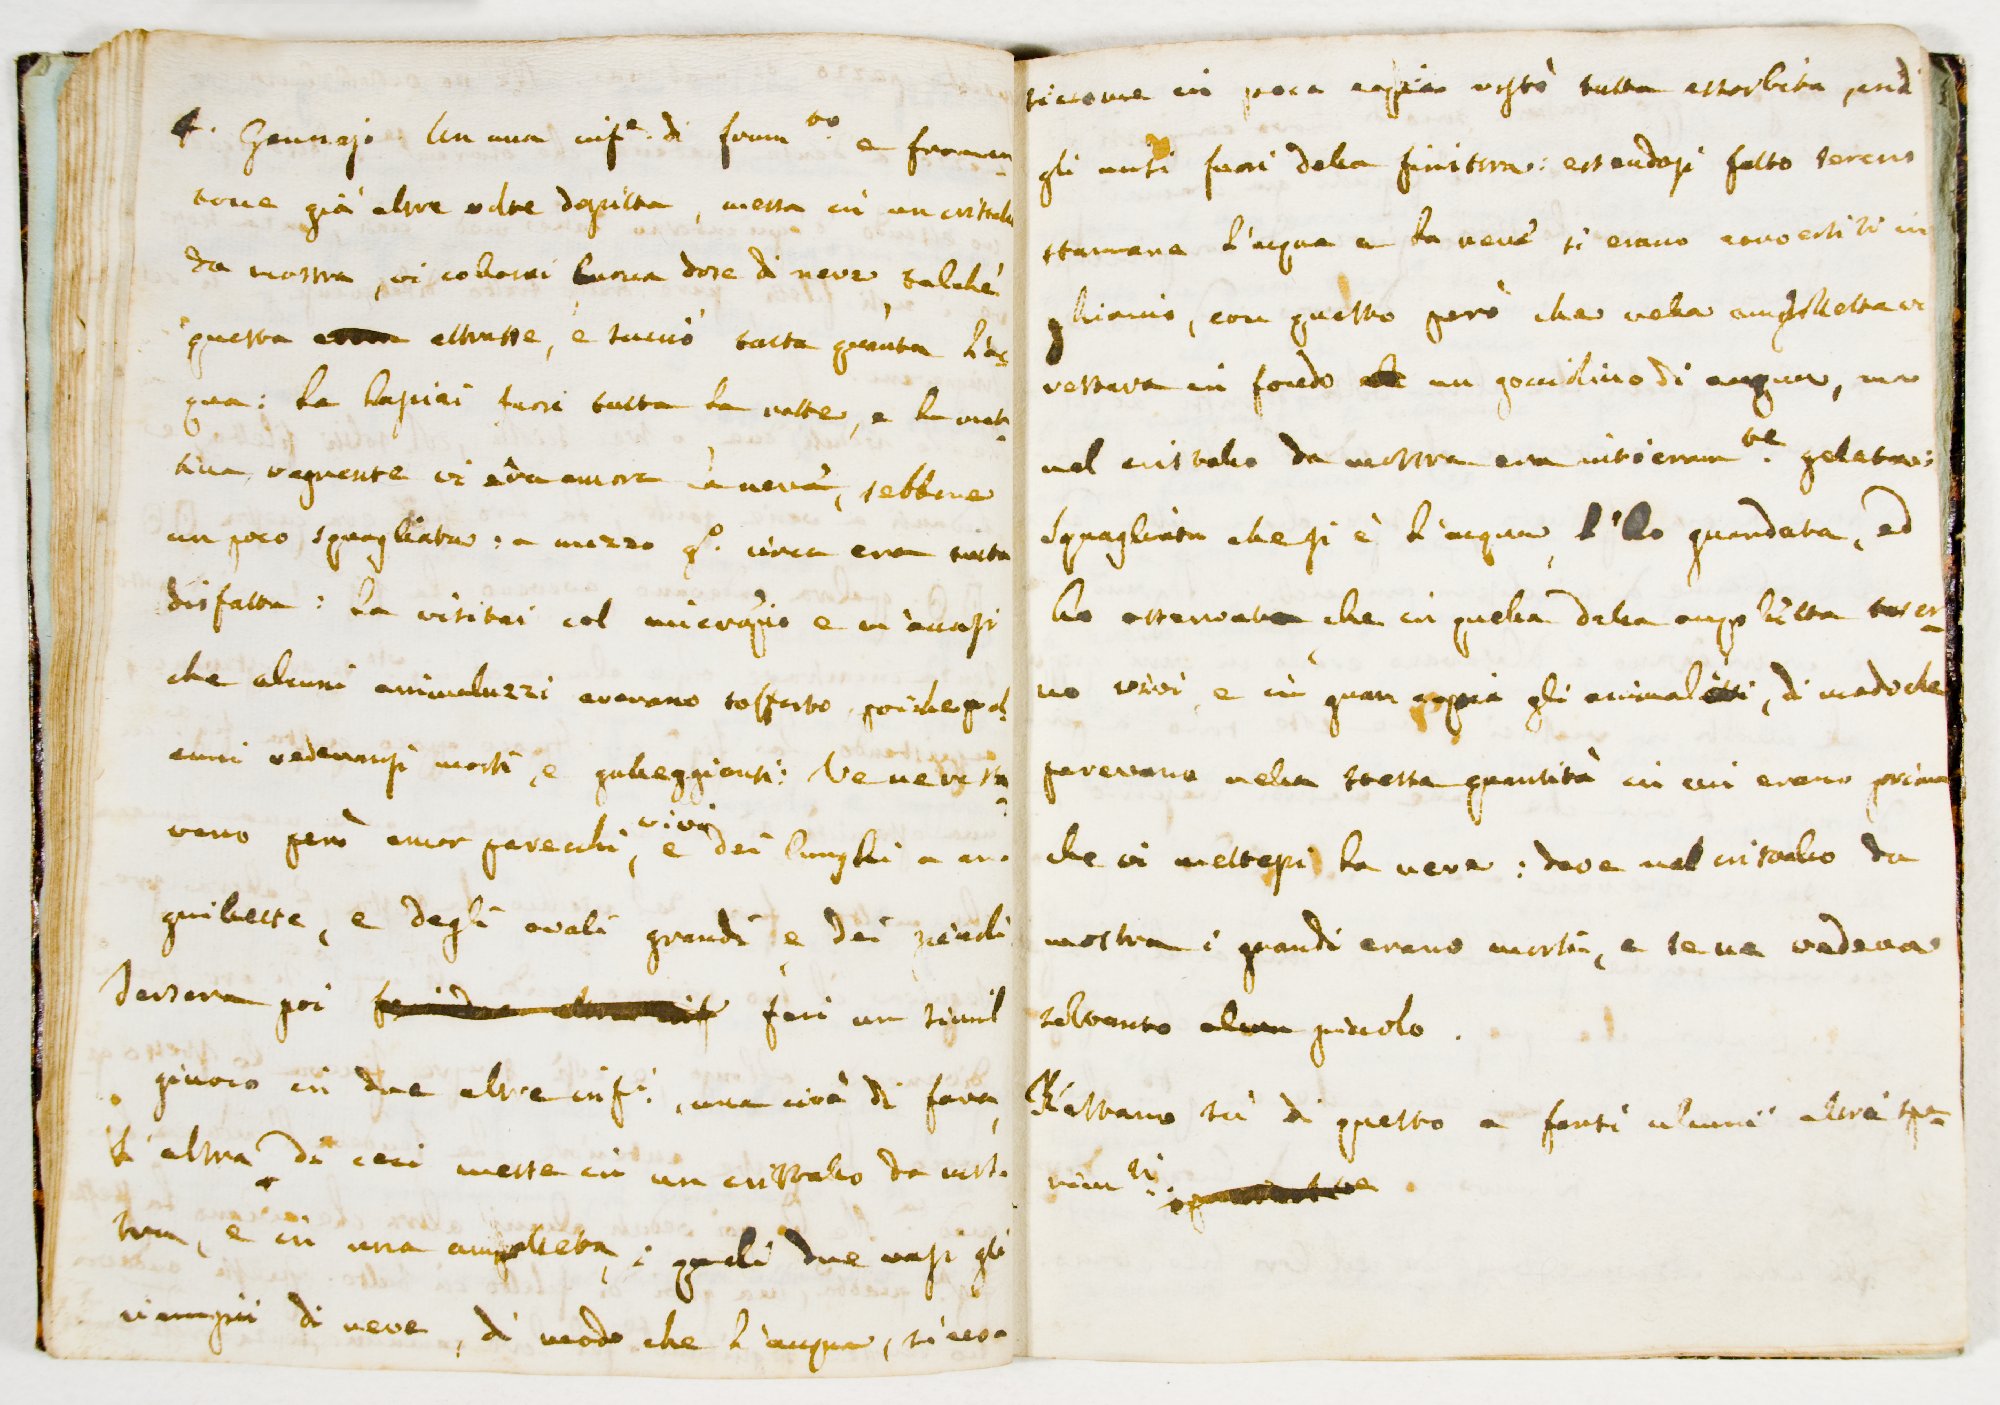 4. Gennajo. In una inf.e di frum.to e frumen-
tone già altre volte descritta, messa in un cristallo
da mostra, vi collocai buona dose di neve, talché
questa attrasse, e succiò tutta quanta l'ac-
qua: la lasciai fuori tutta la notte, e la mat-
tina vegnente vi era ancora la neve, sebbene
un poco squagliata: a mezzo g.o circa era tutta
disfatta: la visitai col microscopio e m'accorsi
che alcuni animaluzzi avevano sofferto, poiché al-
cuni vedevansi morti, e galleggianti: Ve ne resta-
vano però ancor parecchi vivi, e dei lunghi a an-
guillette, e degli ovali grandi e dei piccoli
Jersera poi feci un simil
giuoco in due altre inf.i, una cioè di fava,
l'altra di ceci messe in un cristallo da mos-
tra, e in una ampolletta, i quali due vasi gli
riempii di neve, di modo che l'acqua, sicco-
siccome in poca copia restò tutta assorbita, indi
gli misi fuori della finestra: essendosi fatto sereno
stamane l'acqua e la neve si erano convertiti in
ghiaccio, con questo però che nella ampolletta vi
restava in fondo un gocciolino di acqua, ma
nel cristallo da mostra era intieram.te gelata:
Squagliata che si è l'acqua, l'ho guardata, ed
ho osservato che in quella della ampolletta v'er-
no vivi e in gran copia gli animaletti, di modo che
parevano nella stessa quantità in cui erano prima
che vi mettessi la neve: dove nel cristallo da
mostra i grandi erano morti, e se ne vedeva
soltanto alcun piccolo.
Restano su di questo a farsi alcuni altri spe-
rim.ti